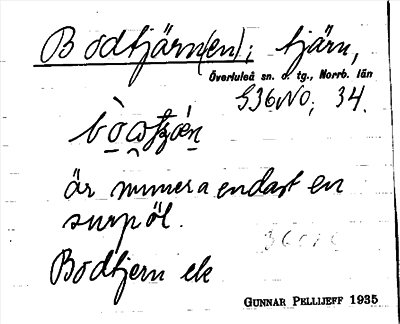 Bodtjärn(en); tjärn,
Överluleå sn. o. tg., Norrb. län
G36NO; 34.
är numera endast en
surpöl.
Bodtjern ek
GUNNAR PELLIJEFF 1935